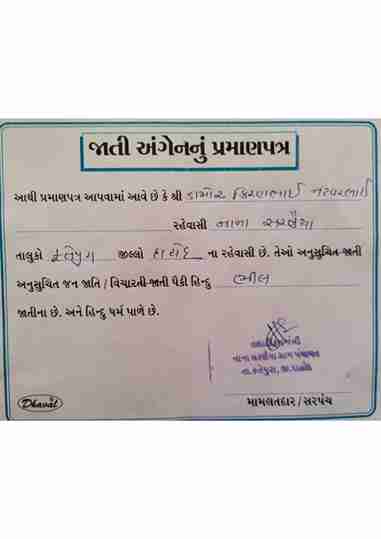 જાતી અંગેનનું પ્રમાણપત્ર
આથી પ્રમાણપત્ર આપવામાં આવે છે કે શ્રી ડામોર કિરણભાઈ નટવરભાઈ
રહેવાસી નાના સરણૈયા
તાલુકો ફતેપુરા જીલ્લો દાહોદ ના રહેવાસી છે. તેઓ અનુસુચિત જાતી
અનુસુચિત જન જાતિ / વિચારતી જાતી પૈકી હિન્દુ ભીલ
જાતીના છે. અને હિન્દુ ધર્મ પાળે છે.
તલાટી કમ મંત્રી
નાના સરણૈયા ગ્રામ પંચાયત
તા.ફતેપુરા, જી.દાહોદ
Dhaval
મામલતદાર / સરપંચ